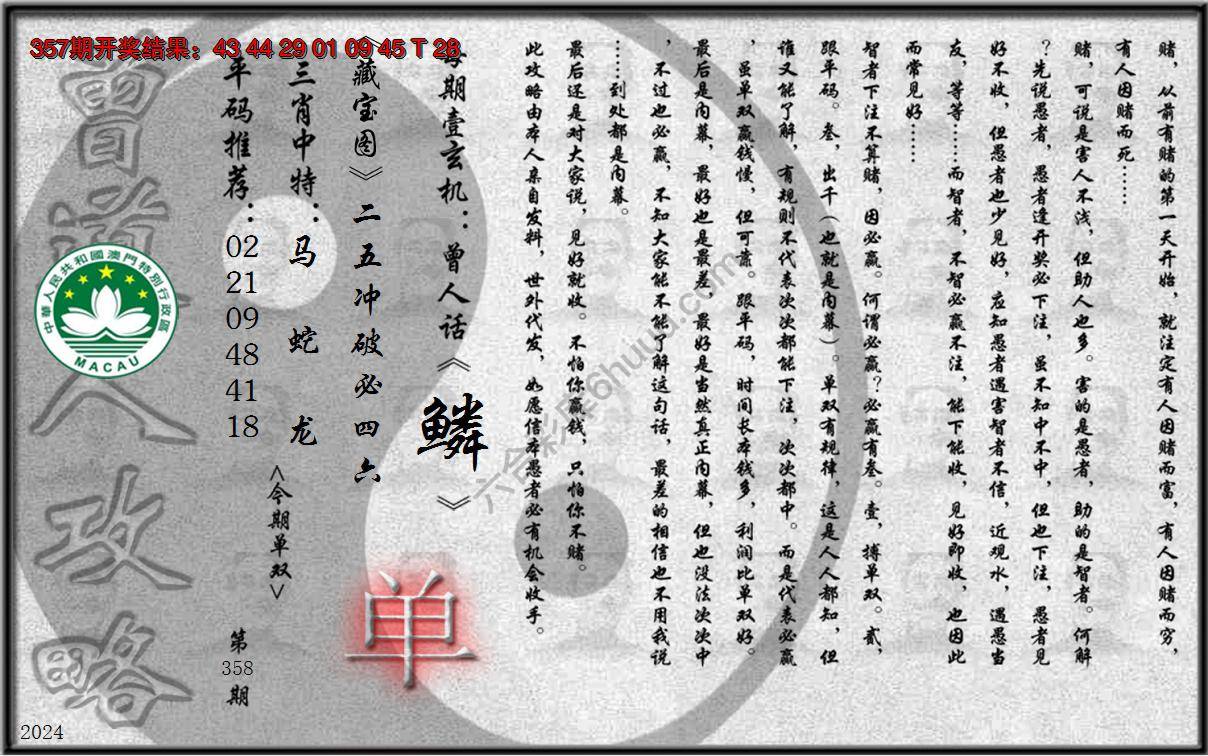 357期开奖结果：43 44 29 01 09 45 T 28
赌，从前有赌的第一天开始，就注定有人因赌而富，有人因赌而穷，
有人因赌而死……
赌，可说是害人不浅，但助人也多。害的是愚者，助的是智者。何解
？先说愚者，愚者逢开奖必下注，虽不知中不中，但也下注，愚者见
好不收，但愚者也少见好，应知愚者遇害智者不信，近观水，遇愚当
友，等等……而智者，不智必赢不注，能下能收，见好即收，也因此
而常见好……
智者下注不算赌，因必赢。何谓必赢？必赢有叁。壹，搏单双。贰，
跟平码。叁，出千（也就是内幕）。单双有规律，这是人人都知，但
谁又能了解，有规则不代表次次都能下注，次次都中。而是代表必赢
，虽单双赢钱慢，但可靠。跟平码，时间长本钱多，利润比单双好。
最后是内幕，最好也是最差，最好是当然真正内幕，但也没法次次中
，不过也必赢，不知大家能不能了解这句话，最差的相信也不用我说
……到处都是内幕。
最后还是对大家说，见好就收。不怕你赢钱，只怕你不赌。
此攻略由本人亲自发料，世外代发，如愿信本愚者必有机会收手。
每期壹玄机：曾人话《鳞》
《藏宝图》二五冲破必四六
三肖中特：马 蛇 龙
平码推荐：02 21 09 48 41 18
<今期单双>
单
第
358
期
曾道人攻略
中華人民共和國澳門特別行政區
MACAU
六合彩库6huuu.com
2024